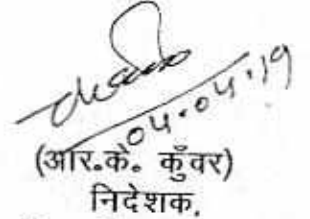 04.04.19
(आर.के. कुँवर)
निदेशक,